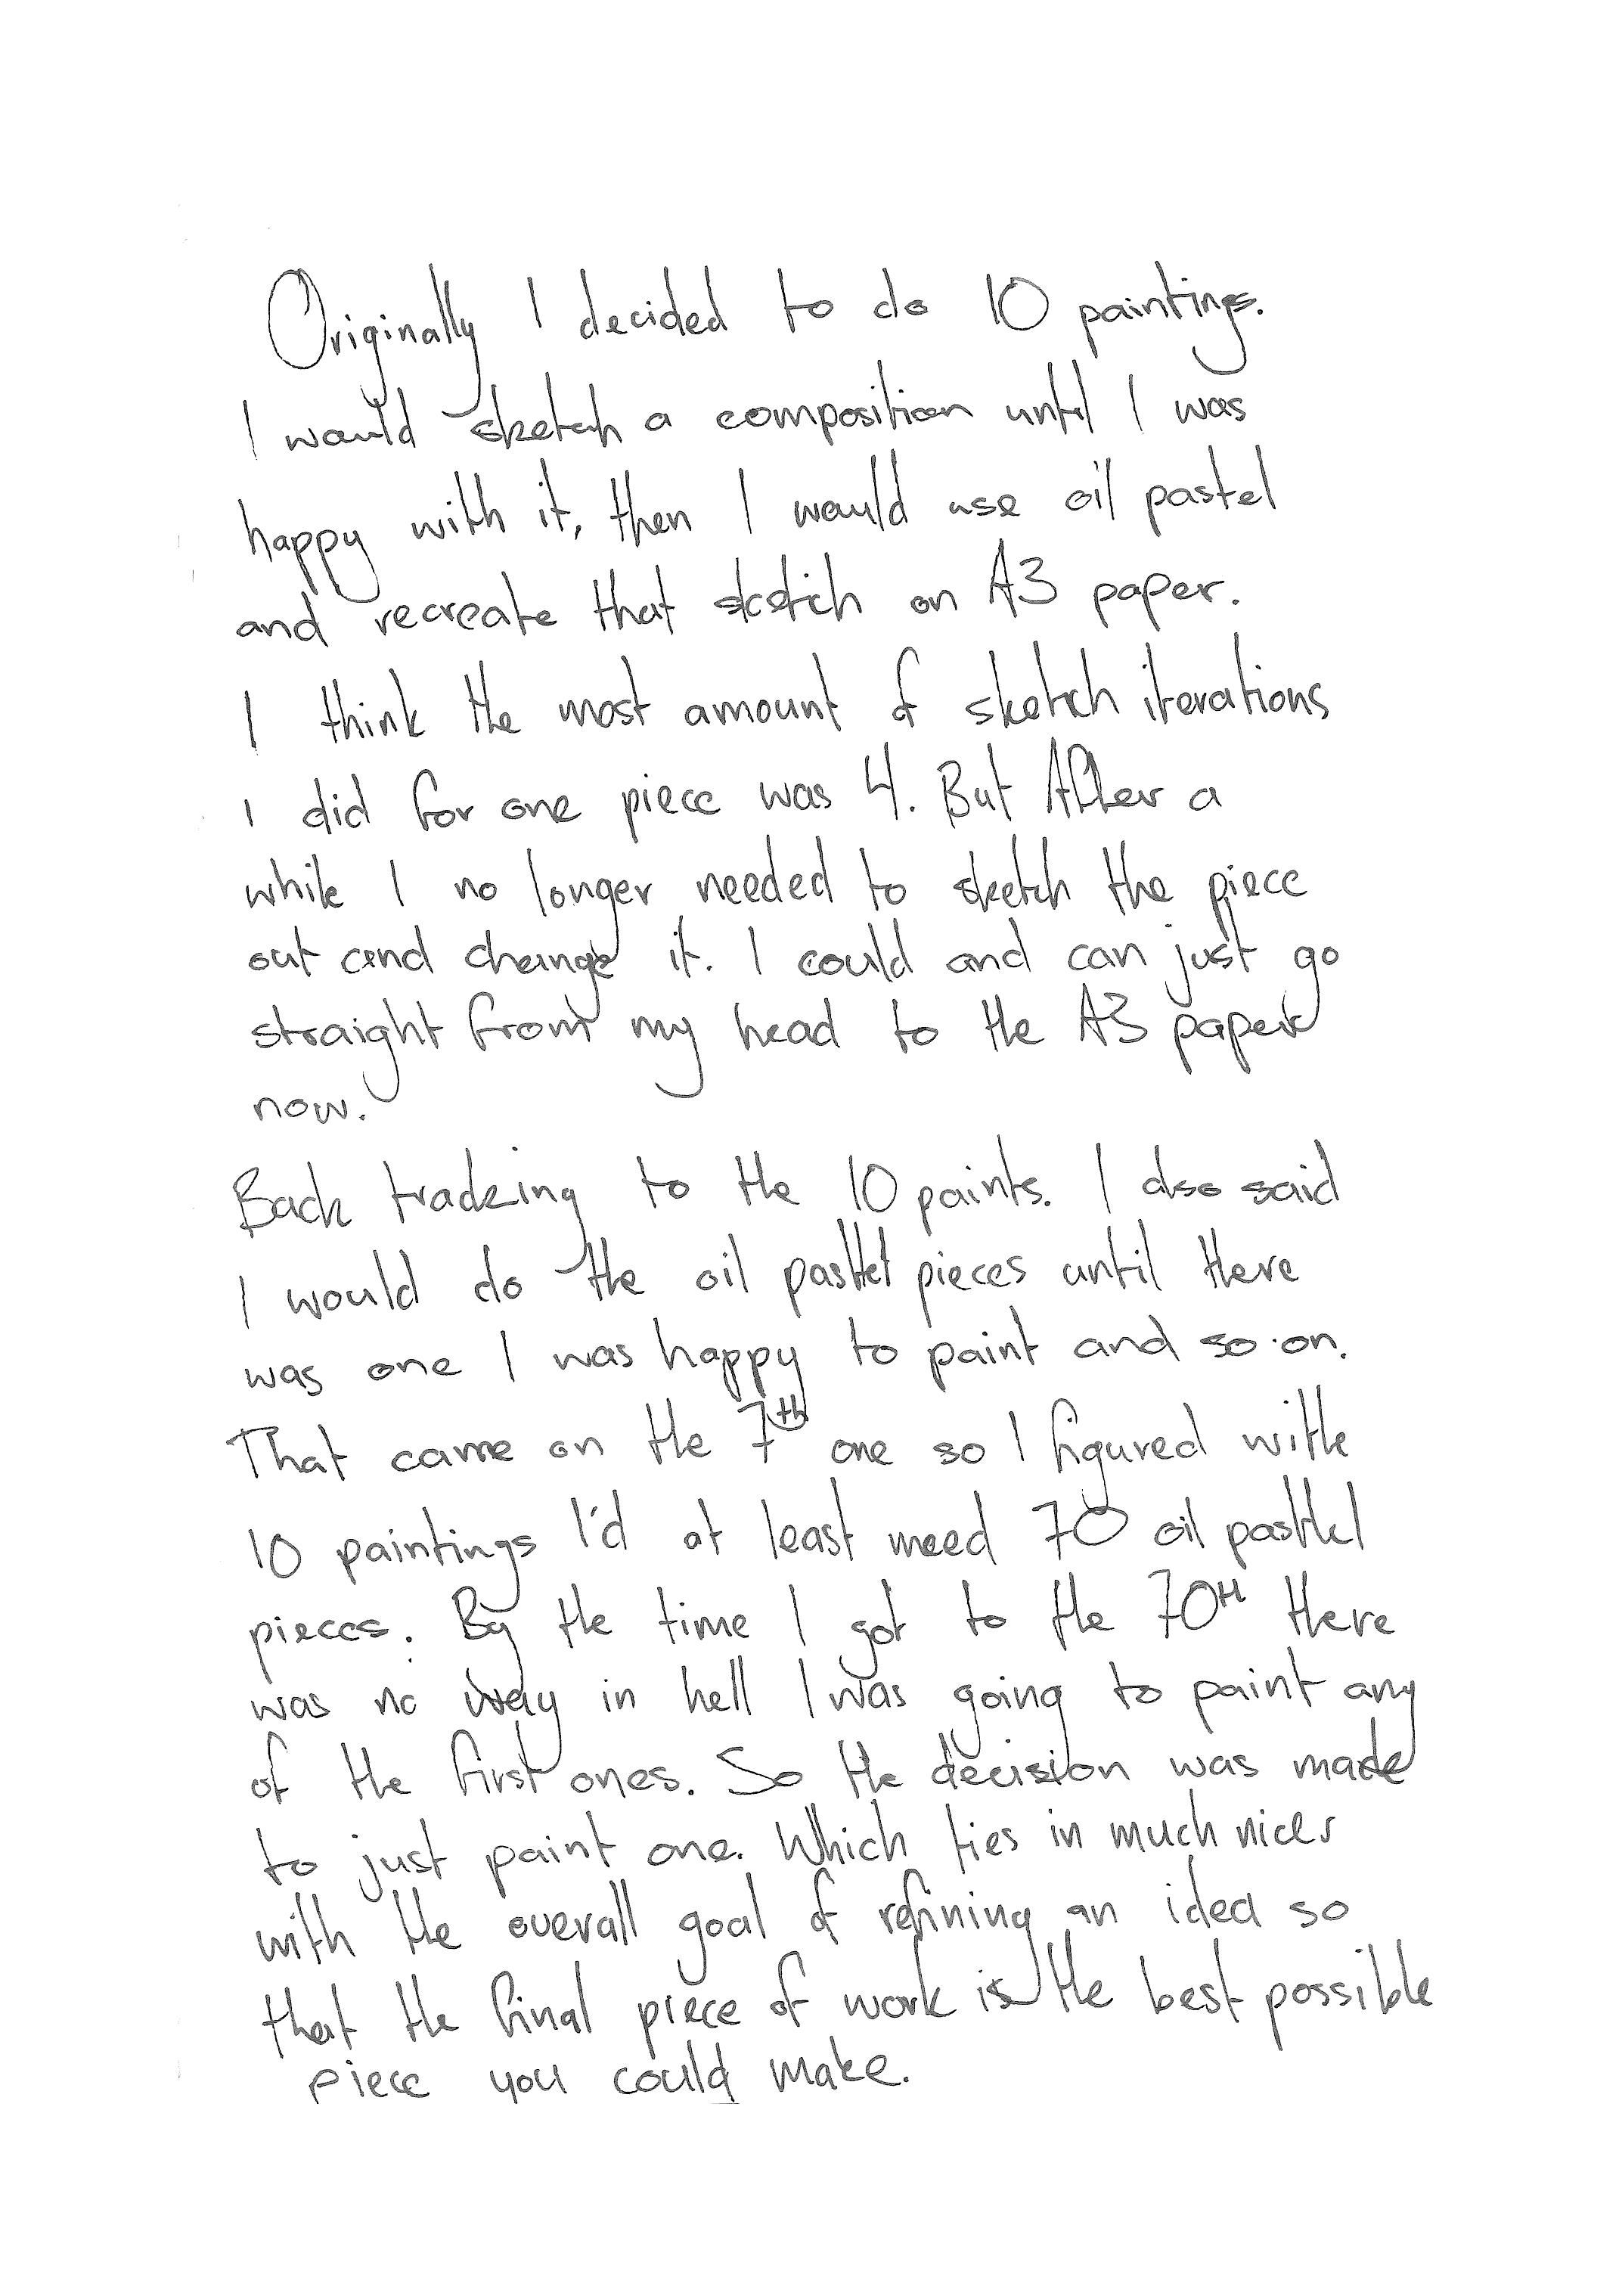 Originally I decided to do 10 paintings.
I would sketch a composition until I was
happy with it, then I would use oil pastel
and recreate that sketch on A3 paper.
I think the most amount of sketch iterations
I did for one piece was 4. But After a
while I no longer needed to sketch the piece
out and change it. I could and can just go
straight from my head to the A3 paper
now.
Back tracking to the 10 paints. I also said
I would do the oil pasttel pieces until there
was one I was happy to paint and so on.
That came on the 7th one so I figured with
10 paintings I'd at least need 70 oil pasttel
pieces. By the time I got to the 70th there
was no way in hell I was going to paint any
of the first ones. So the decision was made
to just paint one. Which ties in much nicer
with the overall goal of refining an idea so
that the final piece of work is the best possible
piece you could make.